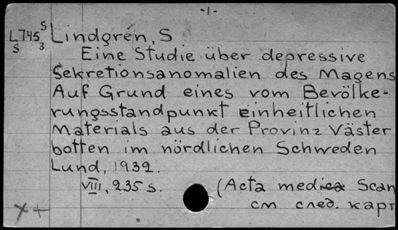 -1-
L745 S
S 3
Lindgren, S
Eine Studie über depressive
Sekretionsanomalien des Magens
Auf Grund eines vom Bevölke-
rungsstandpunkt einheitlichen
Materials aus der Provinz Väster
botten im nördlichen Schweden
Lund, 1932.
VIII, 235 s. (Acta medica Scan
см след. карт